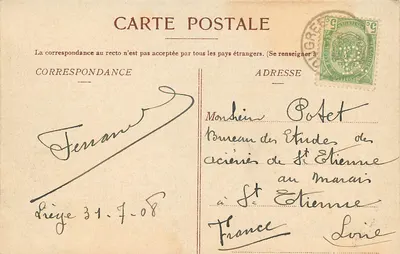 CARTE POSTALE
La correspondance au recto n'est pas acceptée par tous les pays étrangers. (Se renseigner
CORRESPONDANCE
ADRESSE
Monsieur Potet
Bureau des Etudes des
aciéries de St Etienne
au Marais
à St Etienne
France Loire
Fernand
Liège 31-7-08
5 5